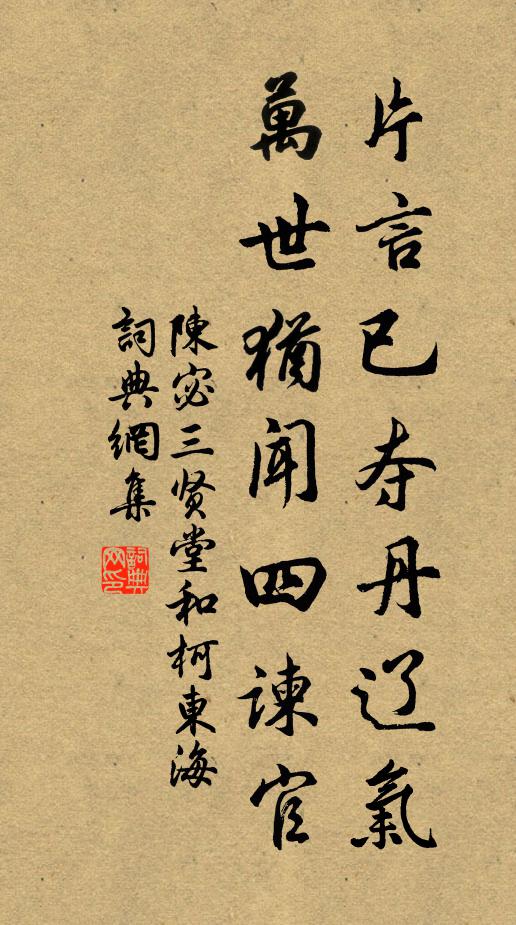 片言已夺丹辽氣
萬世猶闻四諫官
陳宓三贤堂和柯東海
詞典網集
詞典
网印